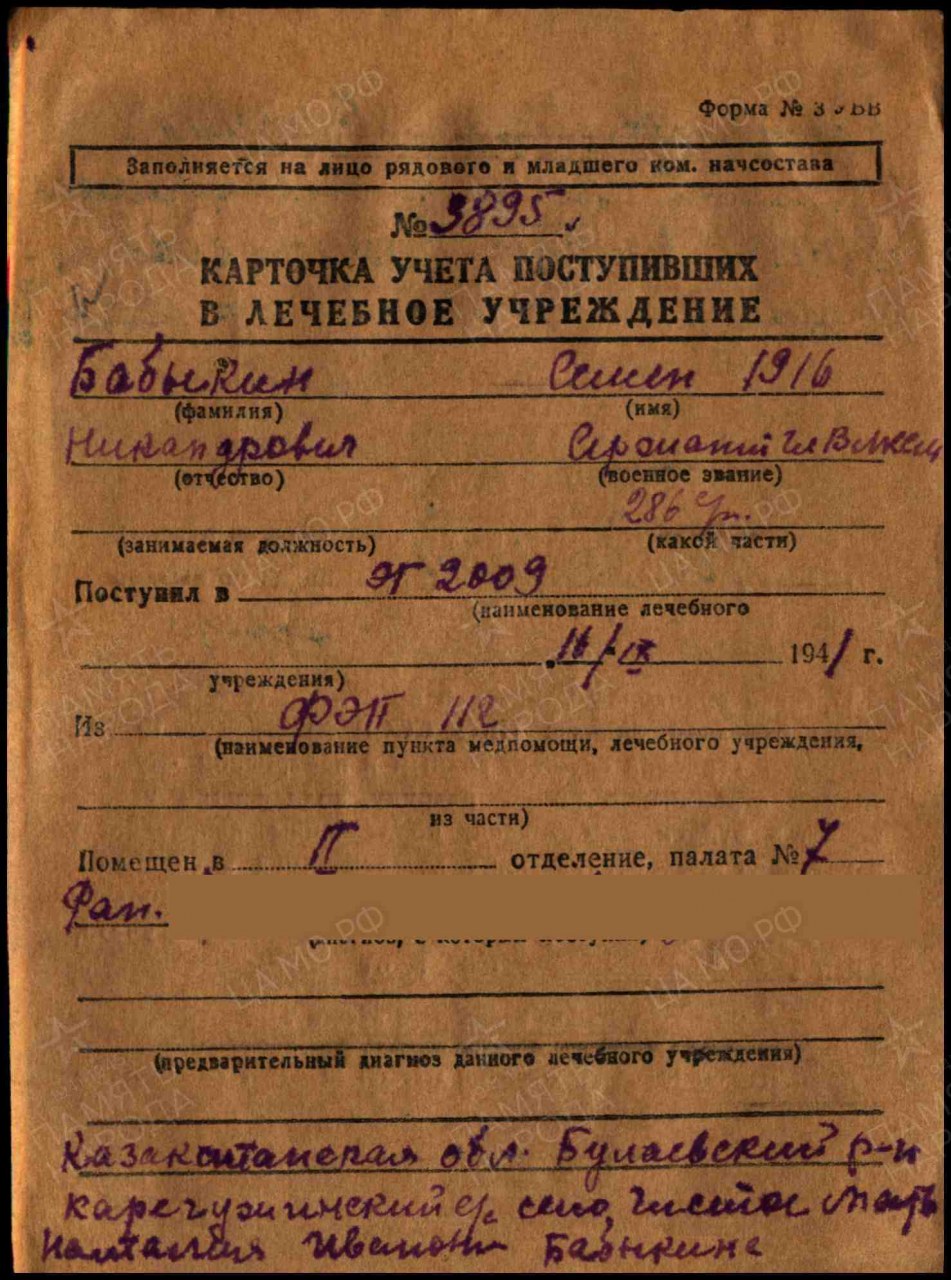 Форма № 3 УВВ
Заполняется на лицо рядового и младшего ком. начсостава
№ 3895
КАРТОЧКА УЧЕТА ПОСТУПИВШИХ
В ЛЕЧЕБНОЕ УЧРЕЖДЕНИЕ
Бабыкин Семен 1916
(фамилия) (имя)
Никандрович Сержант чл ВЛКСМ
(отчество) (военное звание)
286
(занимаемая должность) (какой части)
Поступил в ЭГ 2009
(наименование лечебного
16/IX 1941 г.
учреждения)
Из ФЭП 112
(наименование пункта медпомощи, лечебного учреждения,
из части)
Помещен в II отделение, палата № 7
Ран.
(предварительный диагноз данного лечебного учреждения)
Казахстанская обл. Булаевский р-н
село Чистое Мать
Наталия Ивановн Бабыкина
ПАМЯТЬ НАРОДА
ЦАМО.РФ